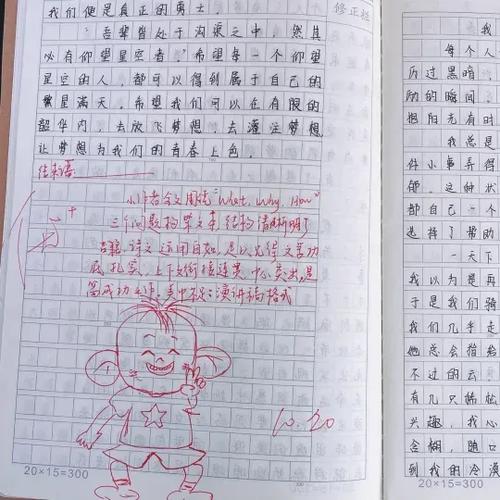 我们便是真正的勇士
"吾辈皆处于沟渠之中,然其
必有仰望星空者。"希望每一个仰望
星空的人,都可以得到属于自己的
繁星满天,希望我们可以在有限的
韶华内,去放飞梦想,去灌注梦想
让梦想为我们的青春上色。
结束语:
小作者全文围绕"What, Why, How"
三个问题构架文章,结构清晰明了
古籍、诗文运用自如,足以见得文言功
底扎实,上下文衔接连贯,中心突出,是
篇成功之作。美中不足:演讲稿格式
10.20
20×15=300
修正栏
我
每个人
历过黑暗
励的瞬间,
抱阳光有时
我总是
件小事弄得
郁。这种状
都自己一个
选择了帮助
一天下
我以为是再
于是我们骑
我们几乎走
她总会指给
不过的云。
有几只
兴趣,我心
含糊,随口
到我的冷漠
20×15=300